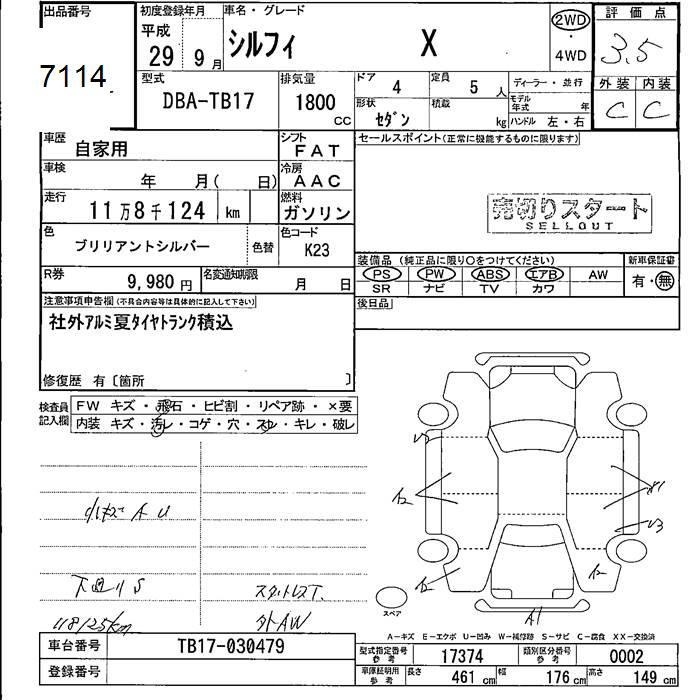 出品番号 初度登録年月 車名・グレード 評価点
7114 平成 29 9月 シルフィ X 2WD・4WD 3.5
型式 排気量 ドア 4 定員 5人 ディーラー・並行 外装 内装
DBA-TB17 1800cc 形状 セダン 積載 kg モデル年式 年 ハンドル 左・右 C C
車歴 自家用 シフト FAT セールスポイント(正常に機能するものに限ります)
車検 年 月( 日) 冷房 AAC
走行 11万8千124 km 燃料 ガソリン 売切りスタート
SELLOUT
色 ブリリアントシルバー 色替 色コード K23
装備品 (純正品に限り○をつけてください) 新車保証書
R券 9,980円 名変通知期限 月 日 PS PW ABS エアB AW 有・無
SR ナビ TV カワ
注意事項申告欄(不具合内容等は具体的に記入して下さい) 後日品
社外アルミ夏タイヤトランク積込
修復歴 有〔箇所 〕
検査員記入欄 FW キズ・飛石・ヒビ割・リペア跡・×要
内装 キズ・汚レ・コゲ・穴・スレ・キレ・破レ
小キズ A U
下廻りS スタットレスT.
118125km 外AW
A2 A2 A2 A1
スペア
A-キズ E-エクボ U-凹み W-補修跡 S-サビ C-腐食 XX-交換済
車台番号 TB17-030479 型式指定番号 参考 17374 類別区分番号 参考 0002
登録番号 車庫証明用 参考 長さ 461cm 幅 176cm 高さ 149cm